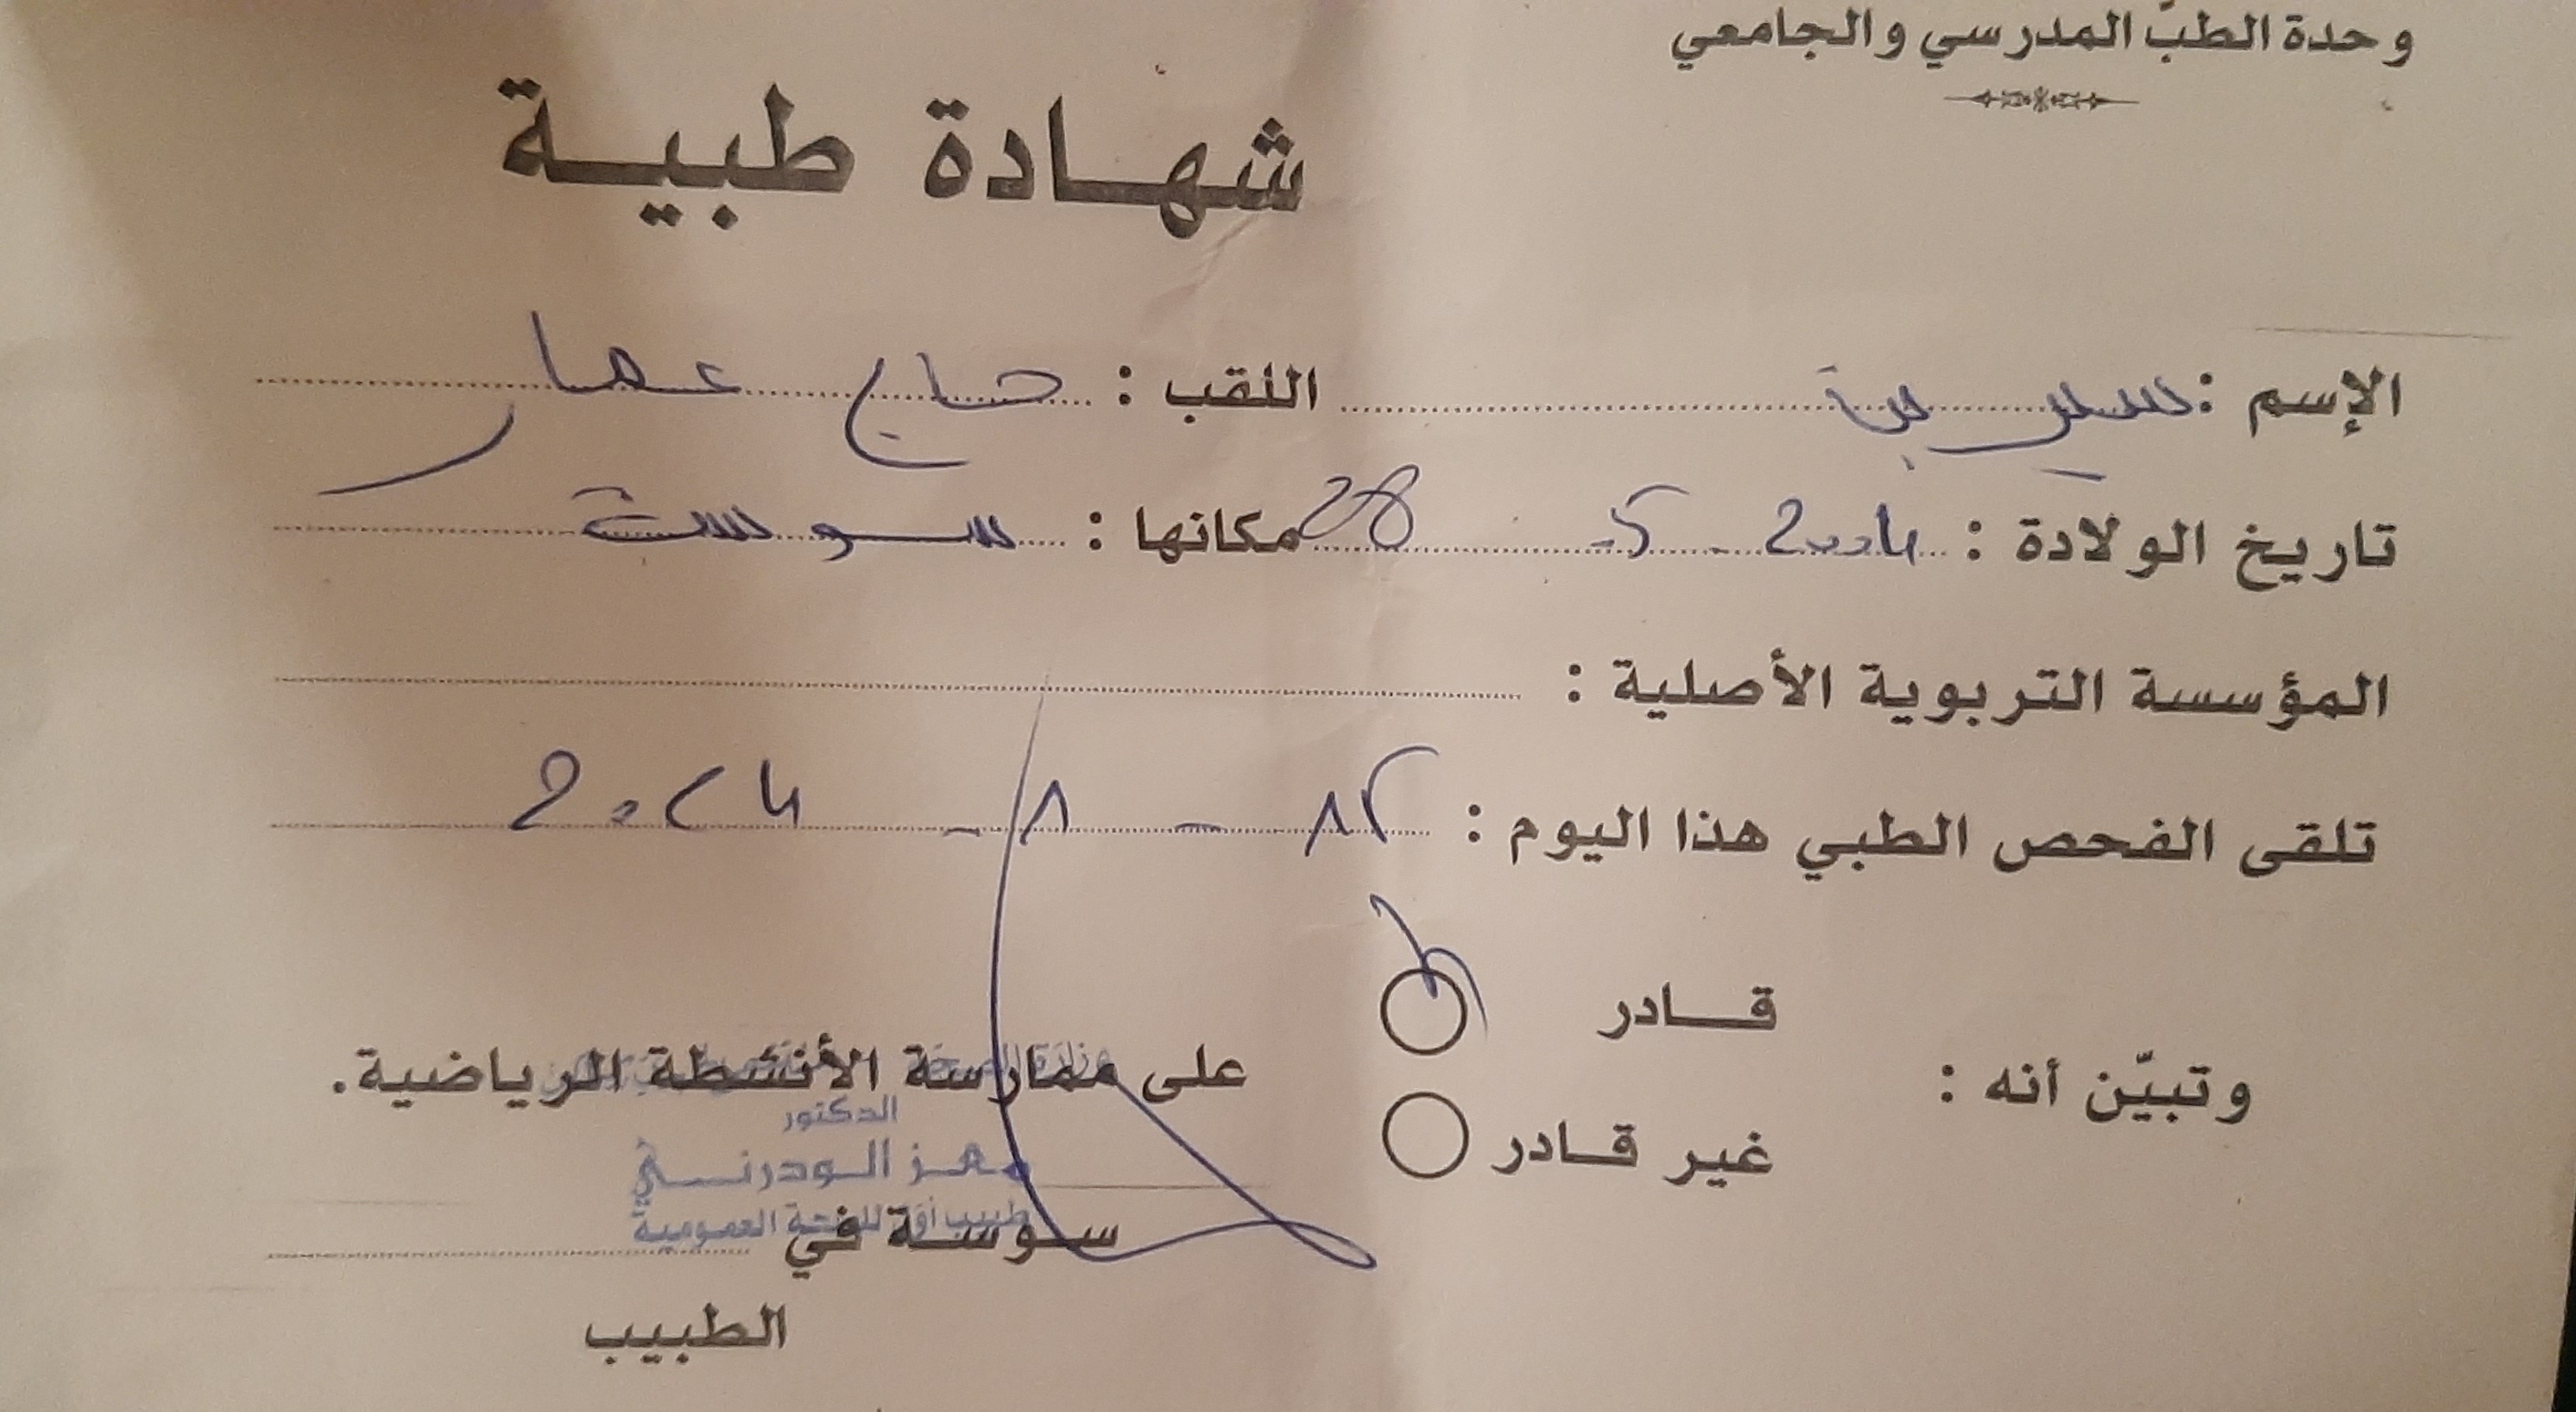 وحدة الطبّ المدرسي والجامعي
شهادة طبية
الإسم : سيرين اللقب : حاج عمار
تاريخ الولادة : 2004 - 5 - 28 مكانها : سوسة
المؤسسة التربوية الأصلية :
تلقى الفحص الطبي هذا اليوم : - 8 - 2024
وتبيّن أنه :
قادر
غير قادر
على ممارسة الأنشطة الرياضية.
الدكتور
معز الودرني
طبيب أول للصحة العمومية
سوسة في
الطبيب